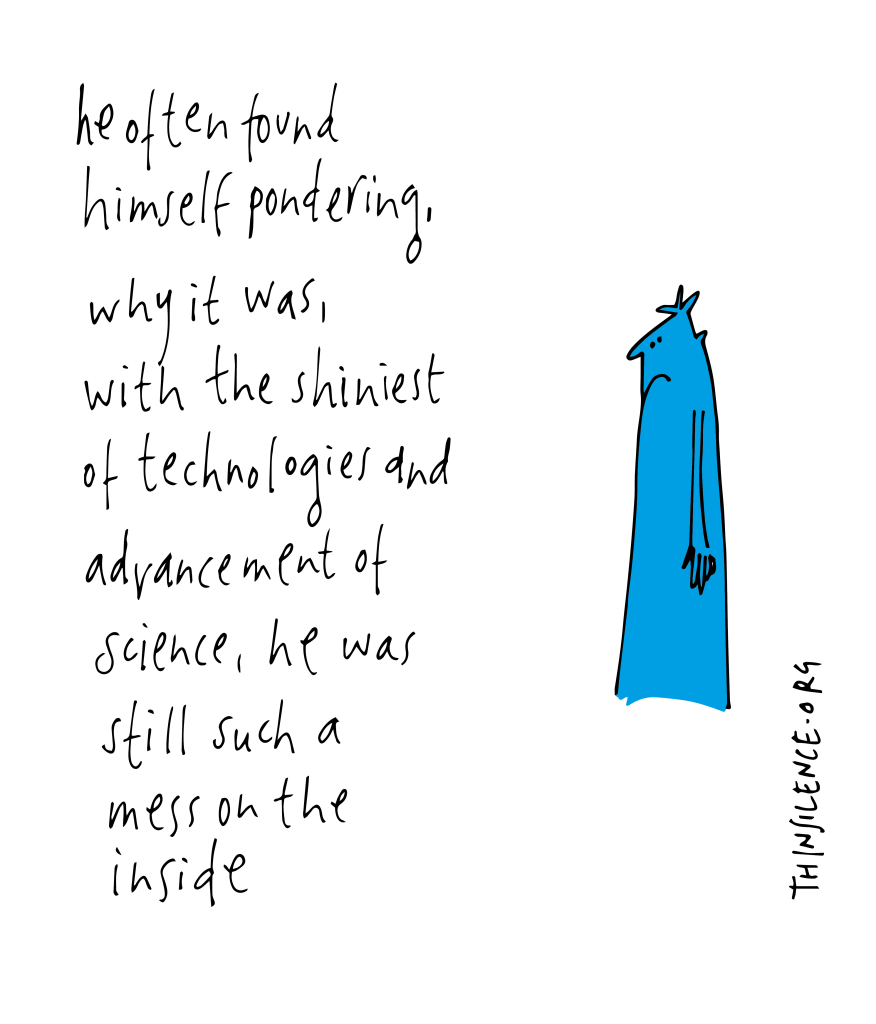 he often found
himself pondering,
why it was,
with the shiniest
of technologies and
advancement of
science, he was
still such a
mess on the
inside
THINSILENCE.ORG